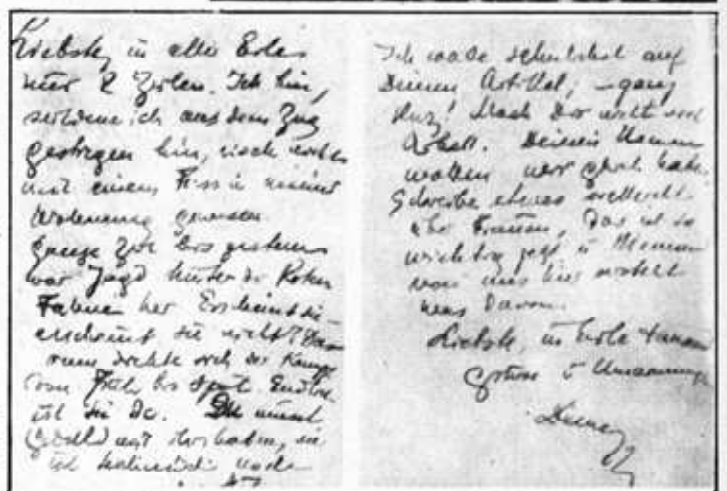 Liebste, in aller Eile
nur 2 Zeilen. Ich bin,
seitdem ich aus dem Zug
gestiegen bin, noch nicht
mit einem Fuss in meiner
Wohnung gewesen.
ganze Zeit bis gestern
war Jagd hinter der Roten
Fahne her. Erscheint sie –
erscheint sie nicht? Da
rum drehte sich der Kampf
von früh bis spät. Endlich
ist sie da. Du musst
Geduld mit ihr haben, sie
ist technisch noch
Ich warte sehnlichst auf
Deinen Artikel, – ganz
kurz! Mach Dir nicht viel
Arbeit. Deinen Namen
wollen wir haben.
Schreibe etwas vielleicht
über Frauen, das ist so
wichtig jetzt u. Niemand
von uns hier versteht
was davon.
Liebste, in Eile tausend
Grüsse u. Umarmungen
Deine